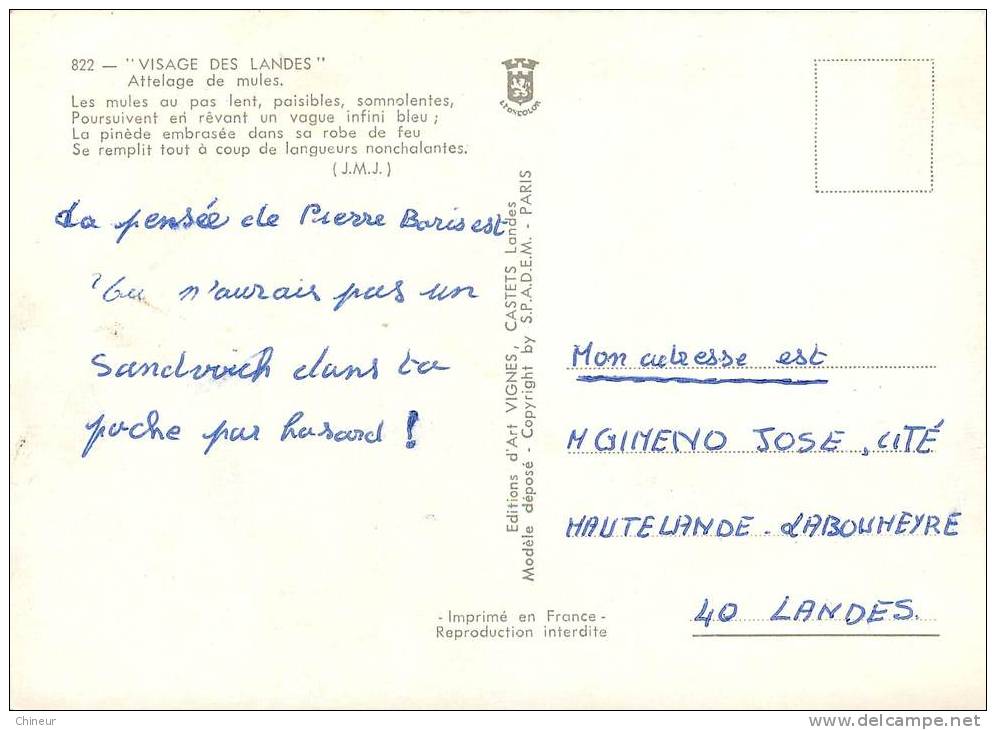 822 — "VISAGE DES LANDES"
Attelage de mules.
Les mules au pas lent, paisibles, somnolentes,
Poursuivent en rêvant un vague infini bleu ;
La pinède embrasée dans sa robe de feu
Se remplit tout à coup de langueurs nonchalantes.
(J.M.J.)
La pensée de Pierre Boris est
Tu n'aurais pas un
Sandwich dans ta
poche par hasard !
LYONCOLOR
Editions d'Art VIGNES, CASTETS Landes
Modèle déposé - Copyright by S.P.A.D.E.M. - PARIS
Mon adresse est
M GIMENO JOSE, CITÉ
HAUTELANDE - LABOUHEYRE
40 LANDES.
- Imprimé en France -
Reproduction interdite
Chineur
delcampe.net